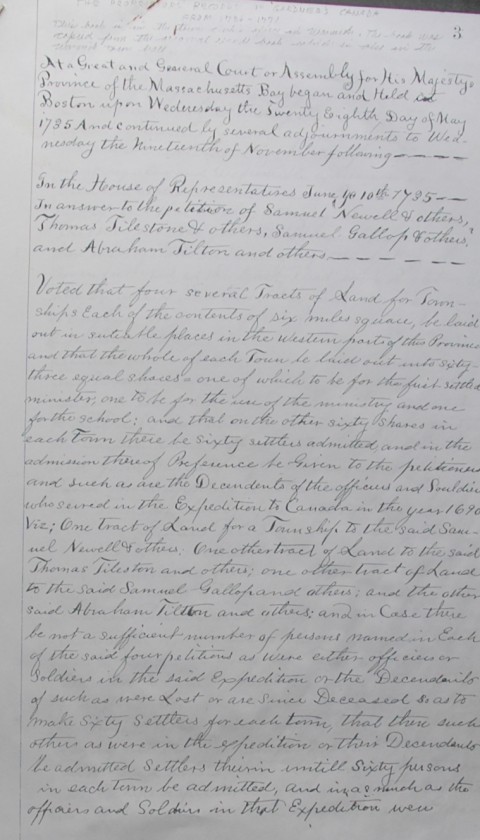 3
At a Great and General Court or Assembly for His Majestys
Province of the Massachusetts Bay began and Held at
Boston upon Wedenesday the Twenty Eighth Day of May
1735 And continued by several adjournments to Wed-
nesday the Nineteenth of November following - - - -
In the House of Representatives June ye 10th 1735 - -
In answer to the petition of Samuel Newell & others,
Thomas Tilestone & others, Samuel Gallop & others,
and Abraham Tilton and others - - - - - -
Voted that four several Tracts of Land for Town-
ships Each of the contents of six miles square, be laid
out in suteable places in the western part of this Province
and that the whole of each Town be laid out into sixty-
three equal shares - one of which to be for the first settled
minister; one to be for the use of the ministry and one
for the school: and that on the other sixty shares in
each Town there be sixty settlers admitted and in the
admission thereof Preference be Given to the petitioners
and such as are the Decendents of the officers and Souldiers
who served in the Expedition to Canada in the year 1690
Viz; One tract of Land for a Township to the said Sam-
uel Newell & others. One other tract of Land to the said
Thomas Tileston and others; one other tract of Land
to the said Samuel Gallop and others; and the other
said Abraham Tilton and others; and in Case there
be not a sufficient number of persons named in Each
of the said four petitions as were either officers or
Soldiers in the said Expedition or the Decendents
of such as were Lost or are Since Deceased so as to
make Sixty Settlers for each town, that then such
others as were in the expedition or their Decendants
be admitted Settlers therein untill Sixty persons
in each town be admitted, and in as much as the
officers and Soldiers in that Expedition were